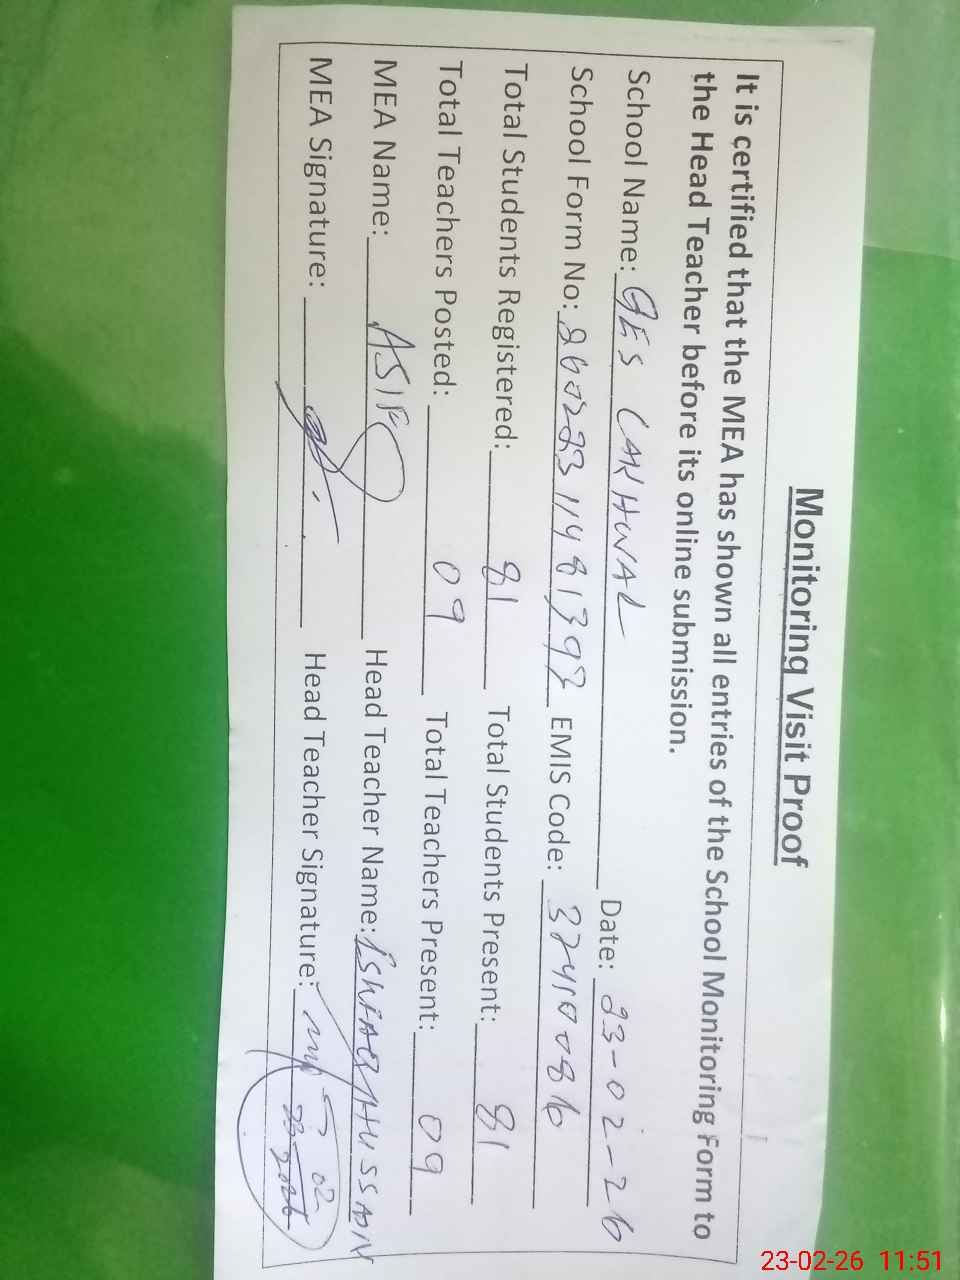 Monitoring Visit Proof
It is certified that the MEA has shown all entries of the School Monitoring Form to
the Head Teacher before its online submission.
School Name: GES Date: 23-02-26
School Form No: EMIS Code:
Total Students Registered: 81 Total Students Present: 81
Total Teachers Posted: 09 Total Teachers Present: 09
MEA Name: ASIF Head Teacher Name:
MEA Signature: Head Teacher Signature:
23-02-26 11:51